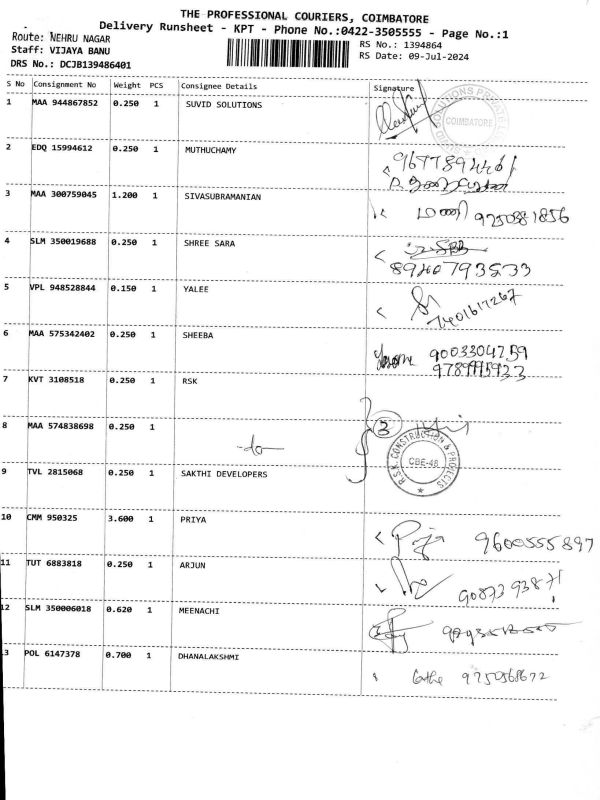 THE PROFESSIONAL COURIERS, COIMBATORE
Delivery Runsheet - KPT - Phone No.:0422-3505555 - Page No.:1
Route: NEHRU NAGAR
RS No.: 1394864
Staff: VIJAYA BANU
RS Date: 09-Jul-2024
DRS No.: DCJB139486401
S No Consignment No Weight PCS Consignee Details Signature
1 MAA 944867852 0.250 1 SUVID SOLUTIONS
COIMBATORE
2 EDQ 15994612 0.250 1 MUTHUCHAMY
3 MAA 300759045 1.200 1 SIVASUBRAMANIAN
மணி 9250881856
4 SLM 350019688 0.250 1 SHREE SARA
8940793533
5 VPL 948528844 0.150 1 YALEE
7401617267
6 MAA 575342402 0.250 1 SHEEBA
9003304759
7 KVT 3108518 0.250 1 RSK
8 MAA 574838698 0.250 1
-do-
3
R.S.K CONSTRUCTION & PROJECTS
CBE-48
9 TVL 2815068 0.250 1 SAKTHI DEVELOPERS
10 CMM 950325 3.600 1 PRIYA
9600555897
11 TUT 6883818 0.250 1 ARJUN
9087393871
12 SLM 350006018 0.620 1 MEENACHI
13 POL 6147378 0.700 1 DHANALAKSHMI
9750568672